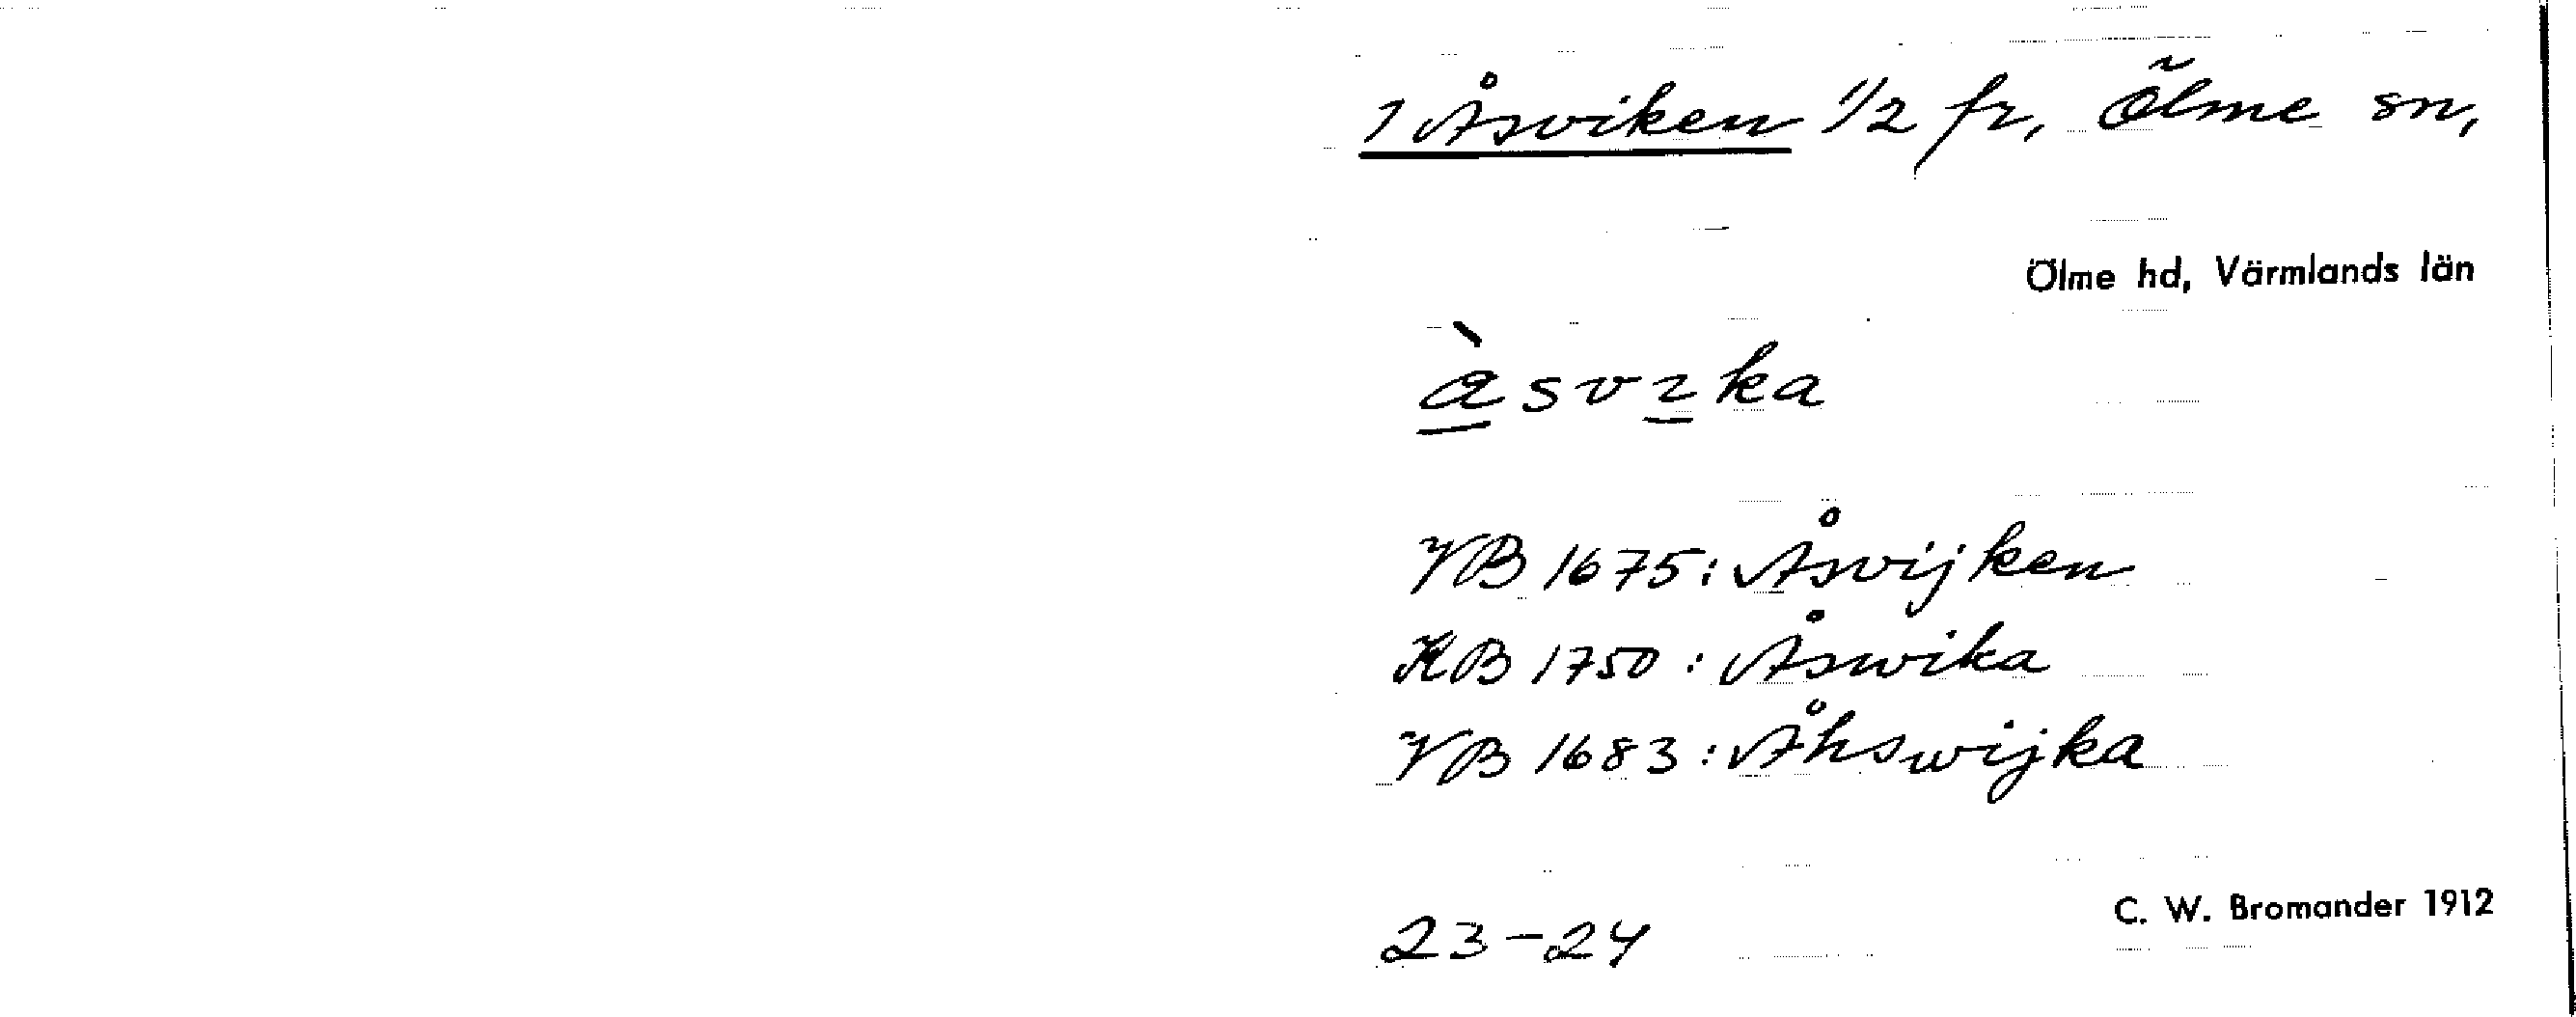 1 Åsviken 1/2 fr, Ölme sn,
Ölme hd, Värmlands län
àsvıka
VB 1675: Åsvijken
KB 1750: Åswika
VB 1683: Åhswijka
C. W. Bromander 1912
23-24